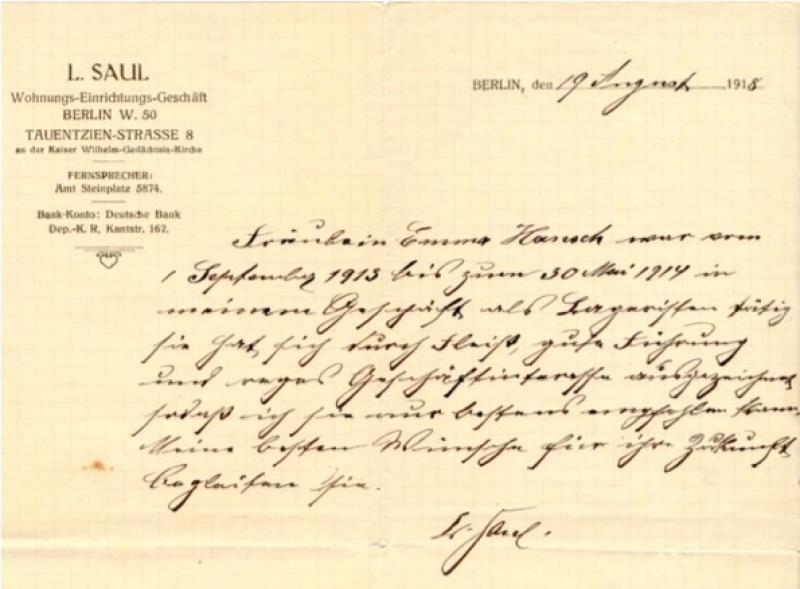 L. SAUL
Wohnungs-Einrichtungs-Geschäft
BERLIN W. 50
TAUENTZIEN-STRASSE 8
an der Kaiser Wilhelm-Gedächtnis-Kirche
FERNSPRECHER:
Amt Steinplatz 5874.
Bank-Konto: Deutsche Bank
Dep.-K. R, Kantstr. 162.
BERLIN, den 19 August 1918
Fräulein Emma Hansch war vom
1 September 1913 bis zum 30 Mai 1914 in
meinem Geschäft als Lageristen tätig,
sie hat sich durch Fleiß, gute Führung
und reges Geschäftinteresse ausgezeichnet
sodaß ich sie nur bestens empfehlen kann.
Meine besten Wünsche für ihre Zukunft
begleiten sie.
L. Saul.